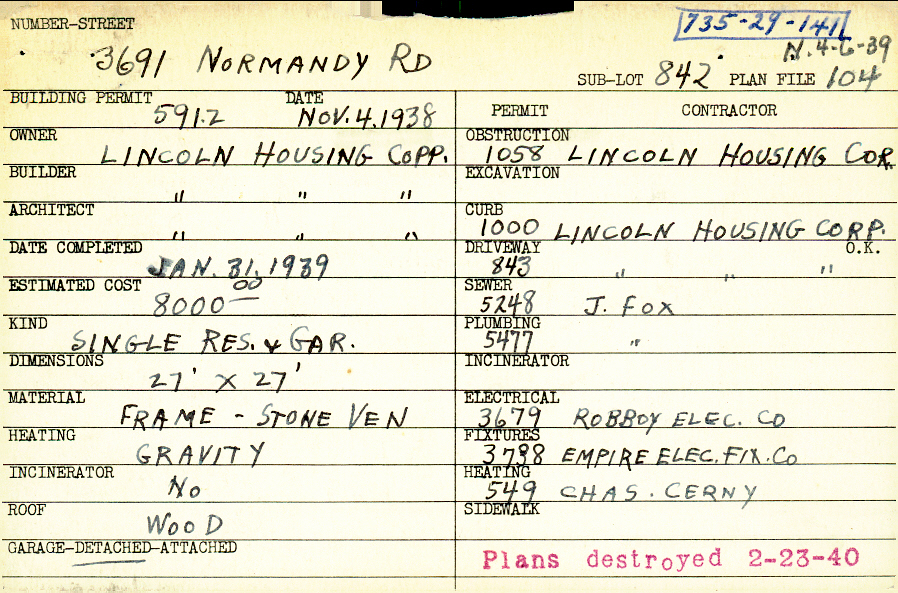 NUMBER-STREET
735-29-141
N. 4-6-39
3691 NORMANDY RD
SUB-LOT 842 PLAN FILE 104
BUILDING PERMIT DATE
5912 NOV. 4. 1938
PERMIT CONTRACTOR
OWNER
LINCOLN HOUSING COPP.
OBSTRUCTION
1058 LINCOLN HOUSING COR.
BUILDER
" " "
EXCAVATION
ARCHITECT
" " "
CURB
1000 LINCOLN HOUSING CORP.
DATE COMPLETED
JAN. 31, 1939
DRIVEWAY O.K.
843 " " "
ESTIMATED COST
8000 00
SEWER
5248 J. FOX
KIND
SINGLE RES. & GAR.
PLUMBING
5477 "
DIMENSIONS
27' X 27'
INCINERATOR
MATERIAL
FRAME - STONE VEN
ELECTRICAL
3679 ROBBOY ELEC. CO
HEATING
GRAVITY
FIXTURES
EMPIRE ELEC. FIX. CO
INCINERATOR
NO
HEATING
549 CHAS. CERNY
ROOF
WOOD
SIDEWALK
GARAGE-DETACHED-ATTACHED
Plans destroyed 2-23-40